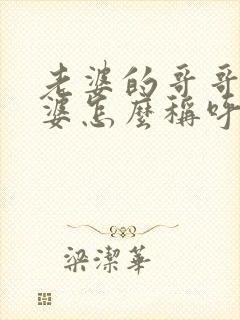 老婆的哥哥
婆怎麼稱呼
梁潔華